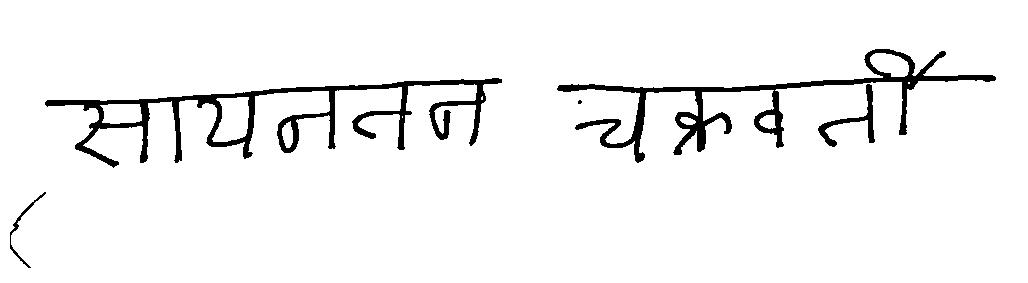 सायनतन चक्रवर्ती
(